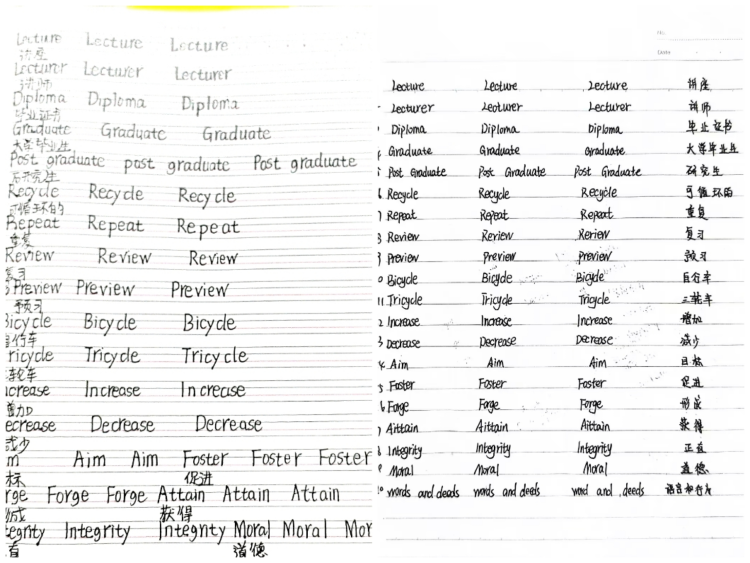 Lecture Lecture Lecture
讲座
Lecturer Lecturer Lecturer
讲师
Diploma Diploma Diploma
毕业证书
Graduate Graduate Graduate
大学毕业生
Post graduate post graduate Post graduate
研究生
Recycle Recycle Recycle
可循环的
Repeat Repeat Repeat
重复
Review Review Review
复习
Preview Preview Preview
预习
Bicycle Bicycle Bicycle
自行车
ricycle Tricycle Tricycle
轮车
crease Increase Increase
增加
ecrease Decrease Decrease
减少
m Aim Aim Foster Foster Foster
标 促进
rge Forge Forge Attain Attain Attain
成 获得
tegrity Integrity Integrity Moral Moral Mor
直 道德
No.
Date
Lecture Lecture Lecture 讲座
Lecturer Lecturer Lecturer 讲师
Diploma Diploma Diploma 毕业证书
Graduate Graduate Graduate 大学毕业生
5 Post Graduate Post Graduate Post Graduate 研究生
6 Recycle Recycle Recycle 可循环的
7 Repeat Repeat Repeat 重复
8 Review Review Review 复习
9 Preview Preview Preview 预习
0 Bicycle Bicycle Bicycle 自行车
11 Tricycle Tricycle Tricycle 三轮车
2 Increase Increase Increase 增加
3 Decrease Decrease Decrease 减少
4 Aim Aim Aim 目标
5 Foster Foster Foster 促进
6 Forge Forge Forge 形成
7 Aittain Aittain Aittain 获得
8 Integrity Integrity Integrity 正直
9 Moral Moral Moral 道德
20 words and deads words and deeds word and deeds 语言和行为